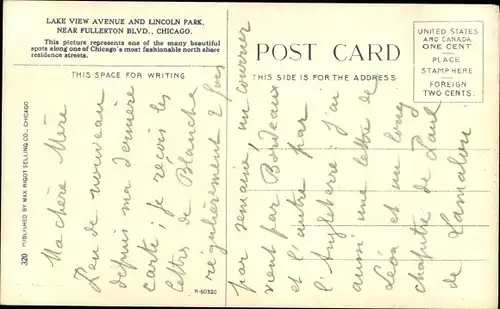 LAKE VIEW AVENUE AND LINCOLN PARK,
NEAR FULLERTON BLVD., CHICAGO.
This picture represents one of the many beautiful
spots along one of Chicago's most fashionable north shore
residence streets.
THIS SPACE FOR WRITING
POST CARD
THIS SIDE IS FOR THE ADDRESS
UNITED STATES
AND CANADA
ONE CENT
PLACE
STAMP HERE
FOREIGN
TWO CENTS.
320 PUBLISHED BY MAX RIGOT SELLING CO., CHICAGO
R-60320
Ma chère Mère
Peu de nouveau
depuis ma dernière
carte; je reçois les
lettres de Blanche
régulièrement 2 fois
par semaine, un courrier
vient par Bordeaux
et l'autre par
l'Angleterre. J'ai
aussi une lettre de
Léon et un long
chapitre de Paul
de Lamalou